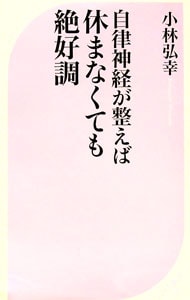 小林弘幸
自律神経が整えば
休まなくても
絶好調